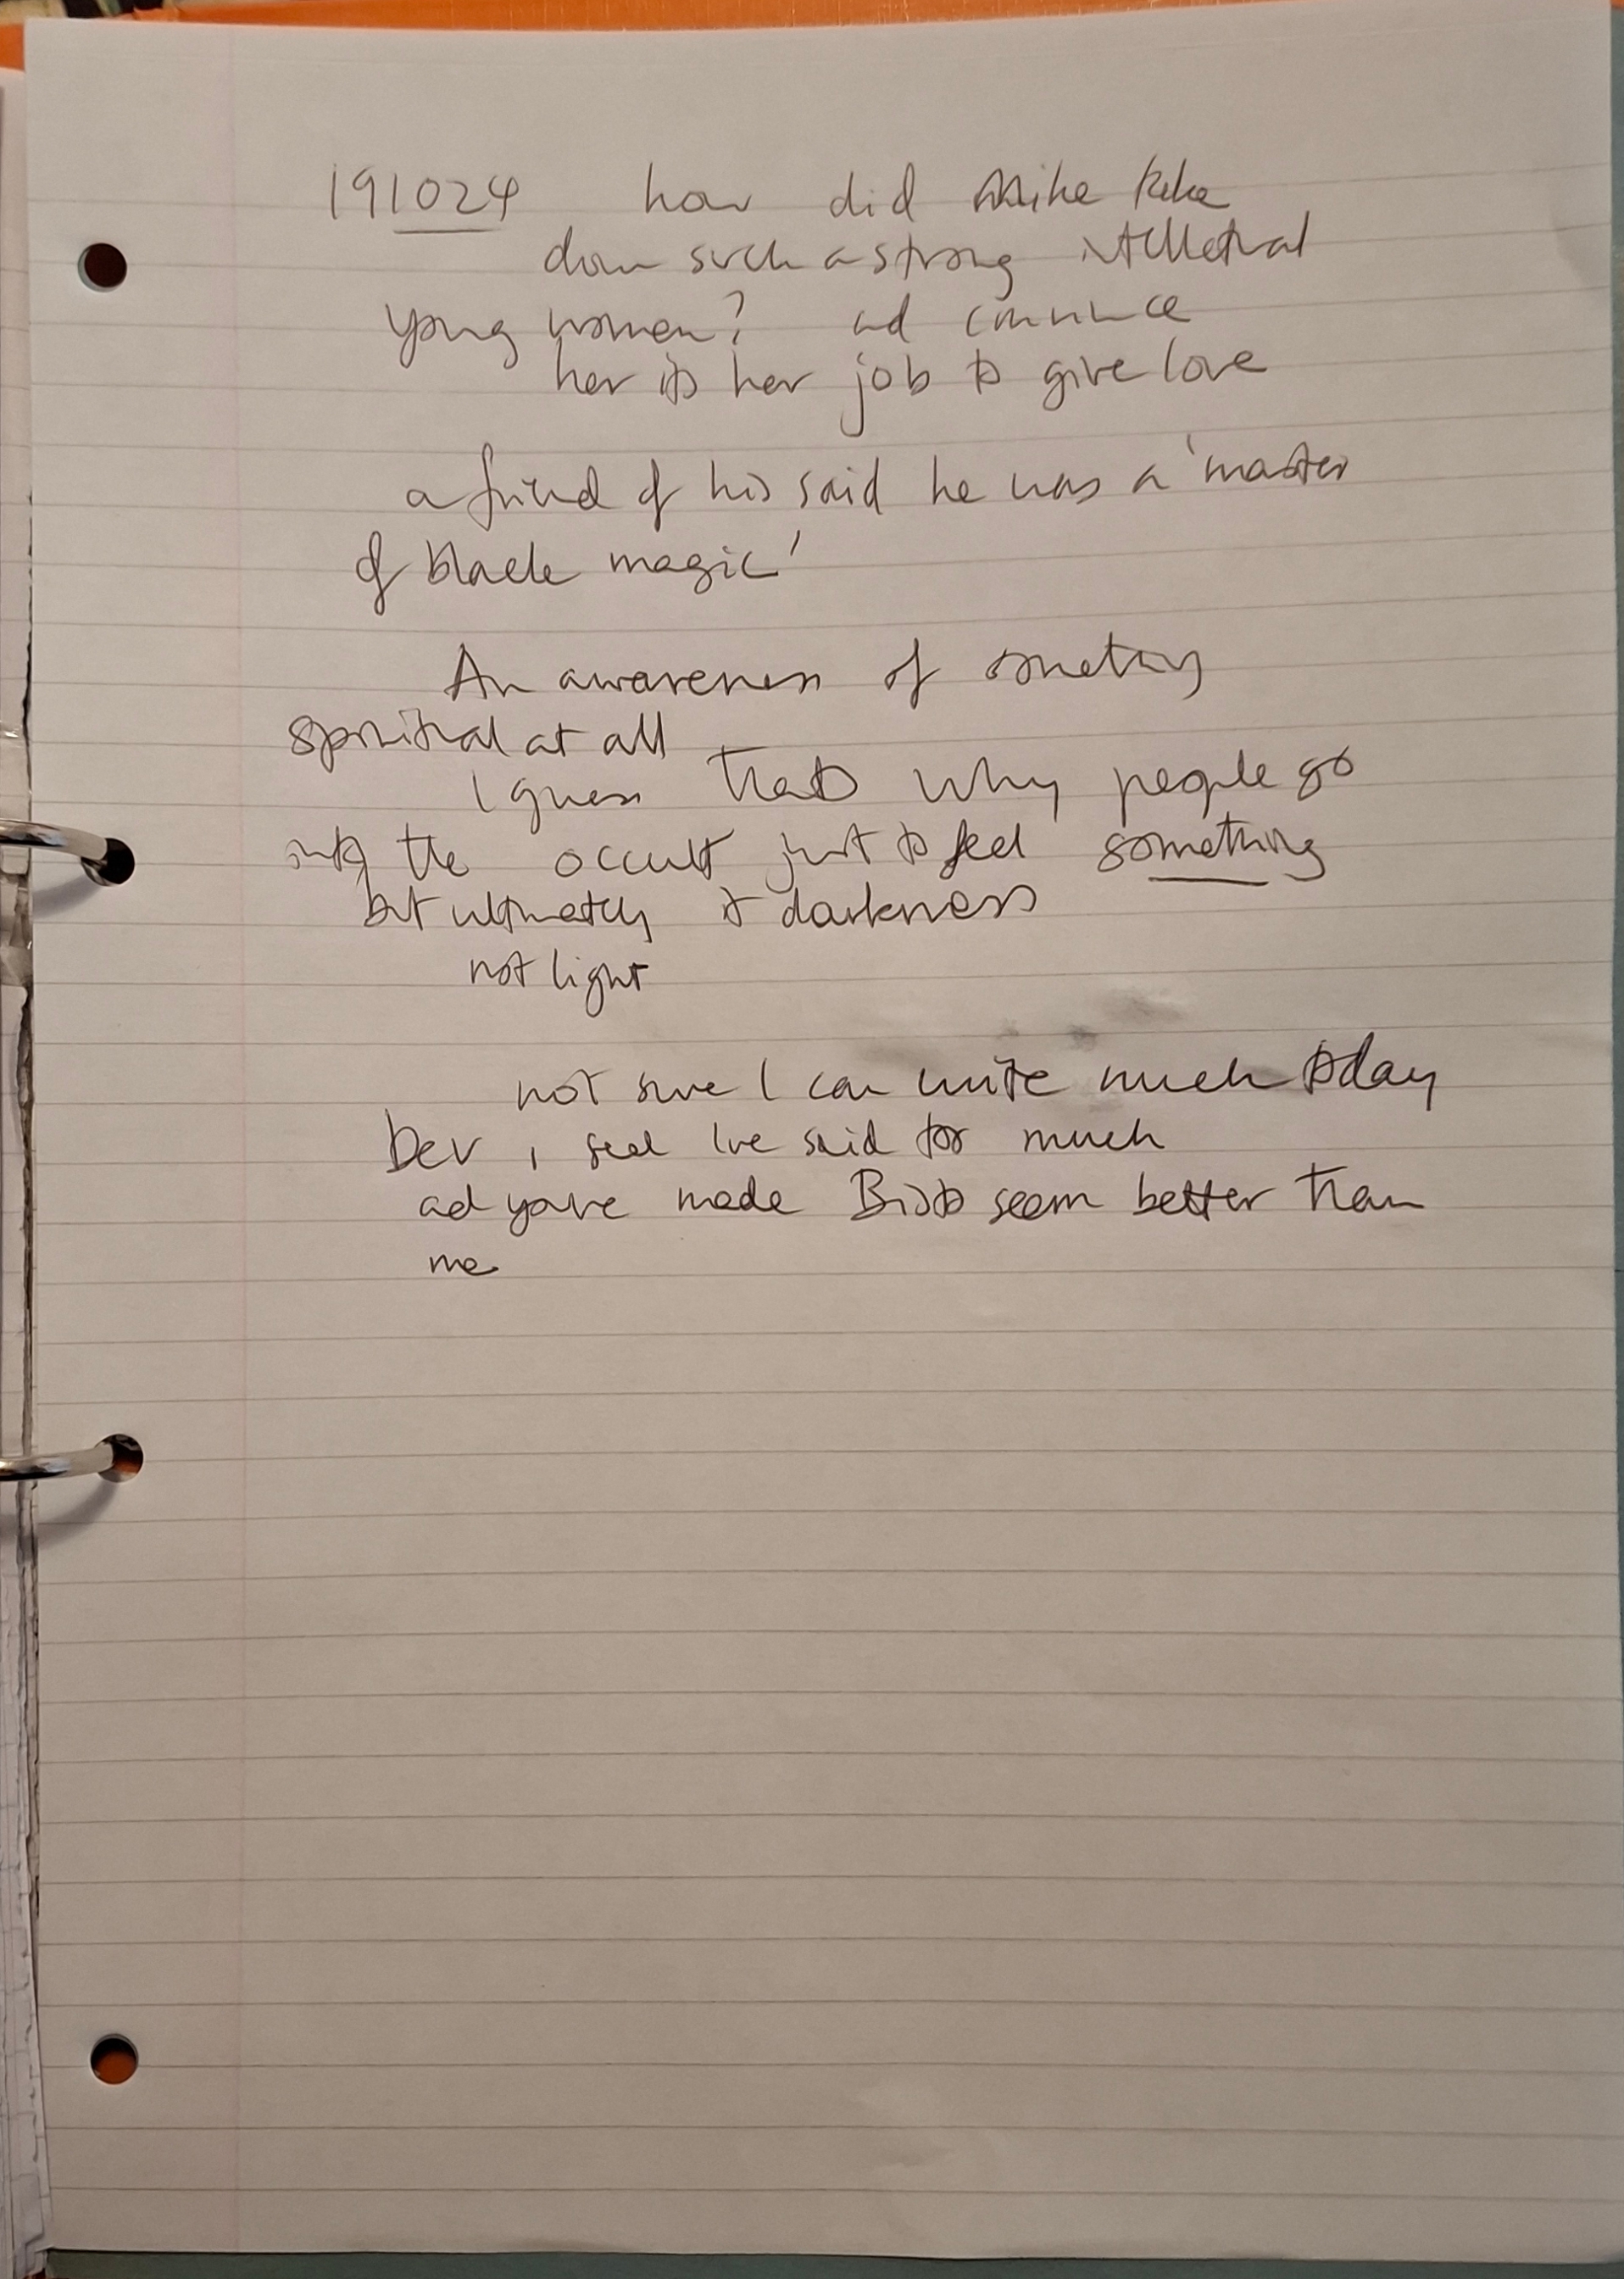 191024 how did Mike take
down such a strong intellectual
young women? and convince
her its her job to give love
a friend of his said he was a 'master
of black magic'
An awareness of something
spiritual at all
I guess thats why people go
into the occult just to feel something
but ultimately it darkness
not light
not sure I can write much today
Dev, I feel Ive said too much
ad youve made seem better than
me